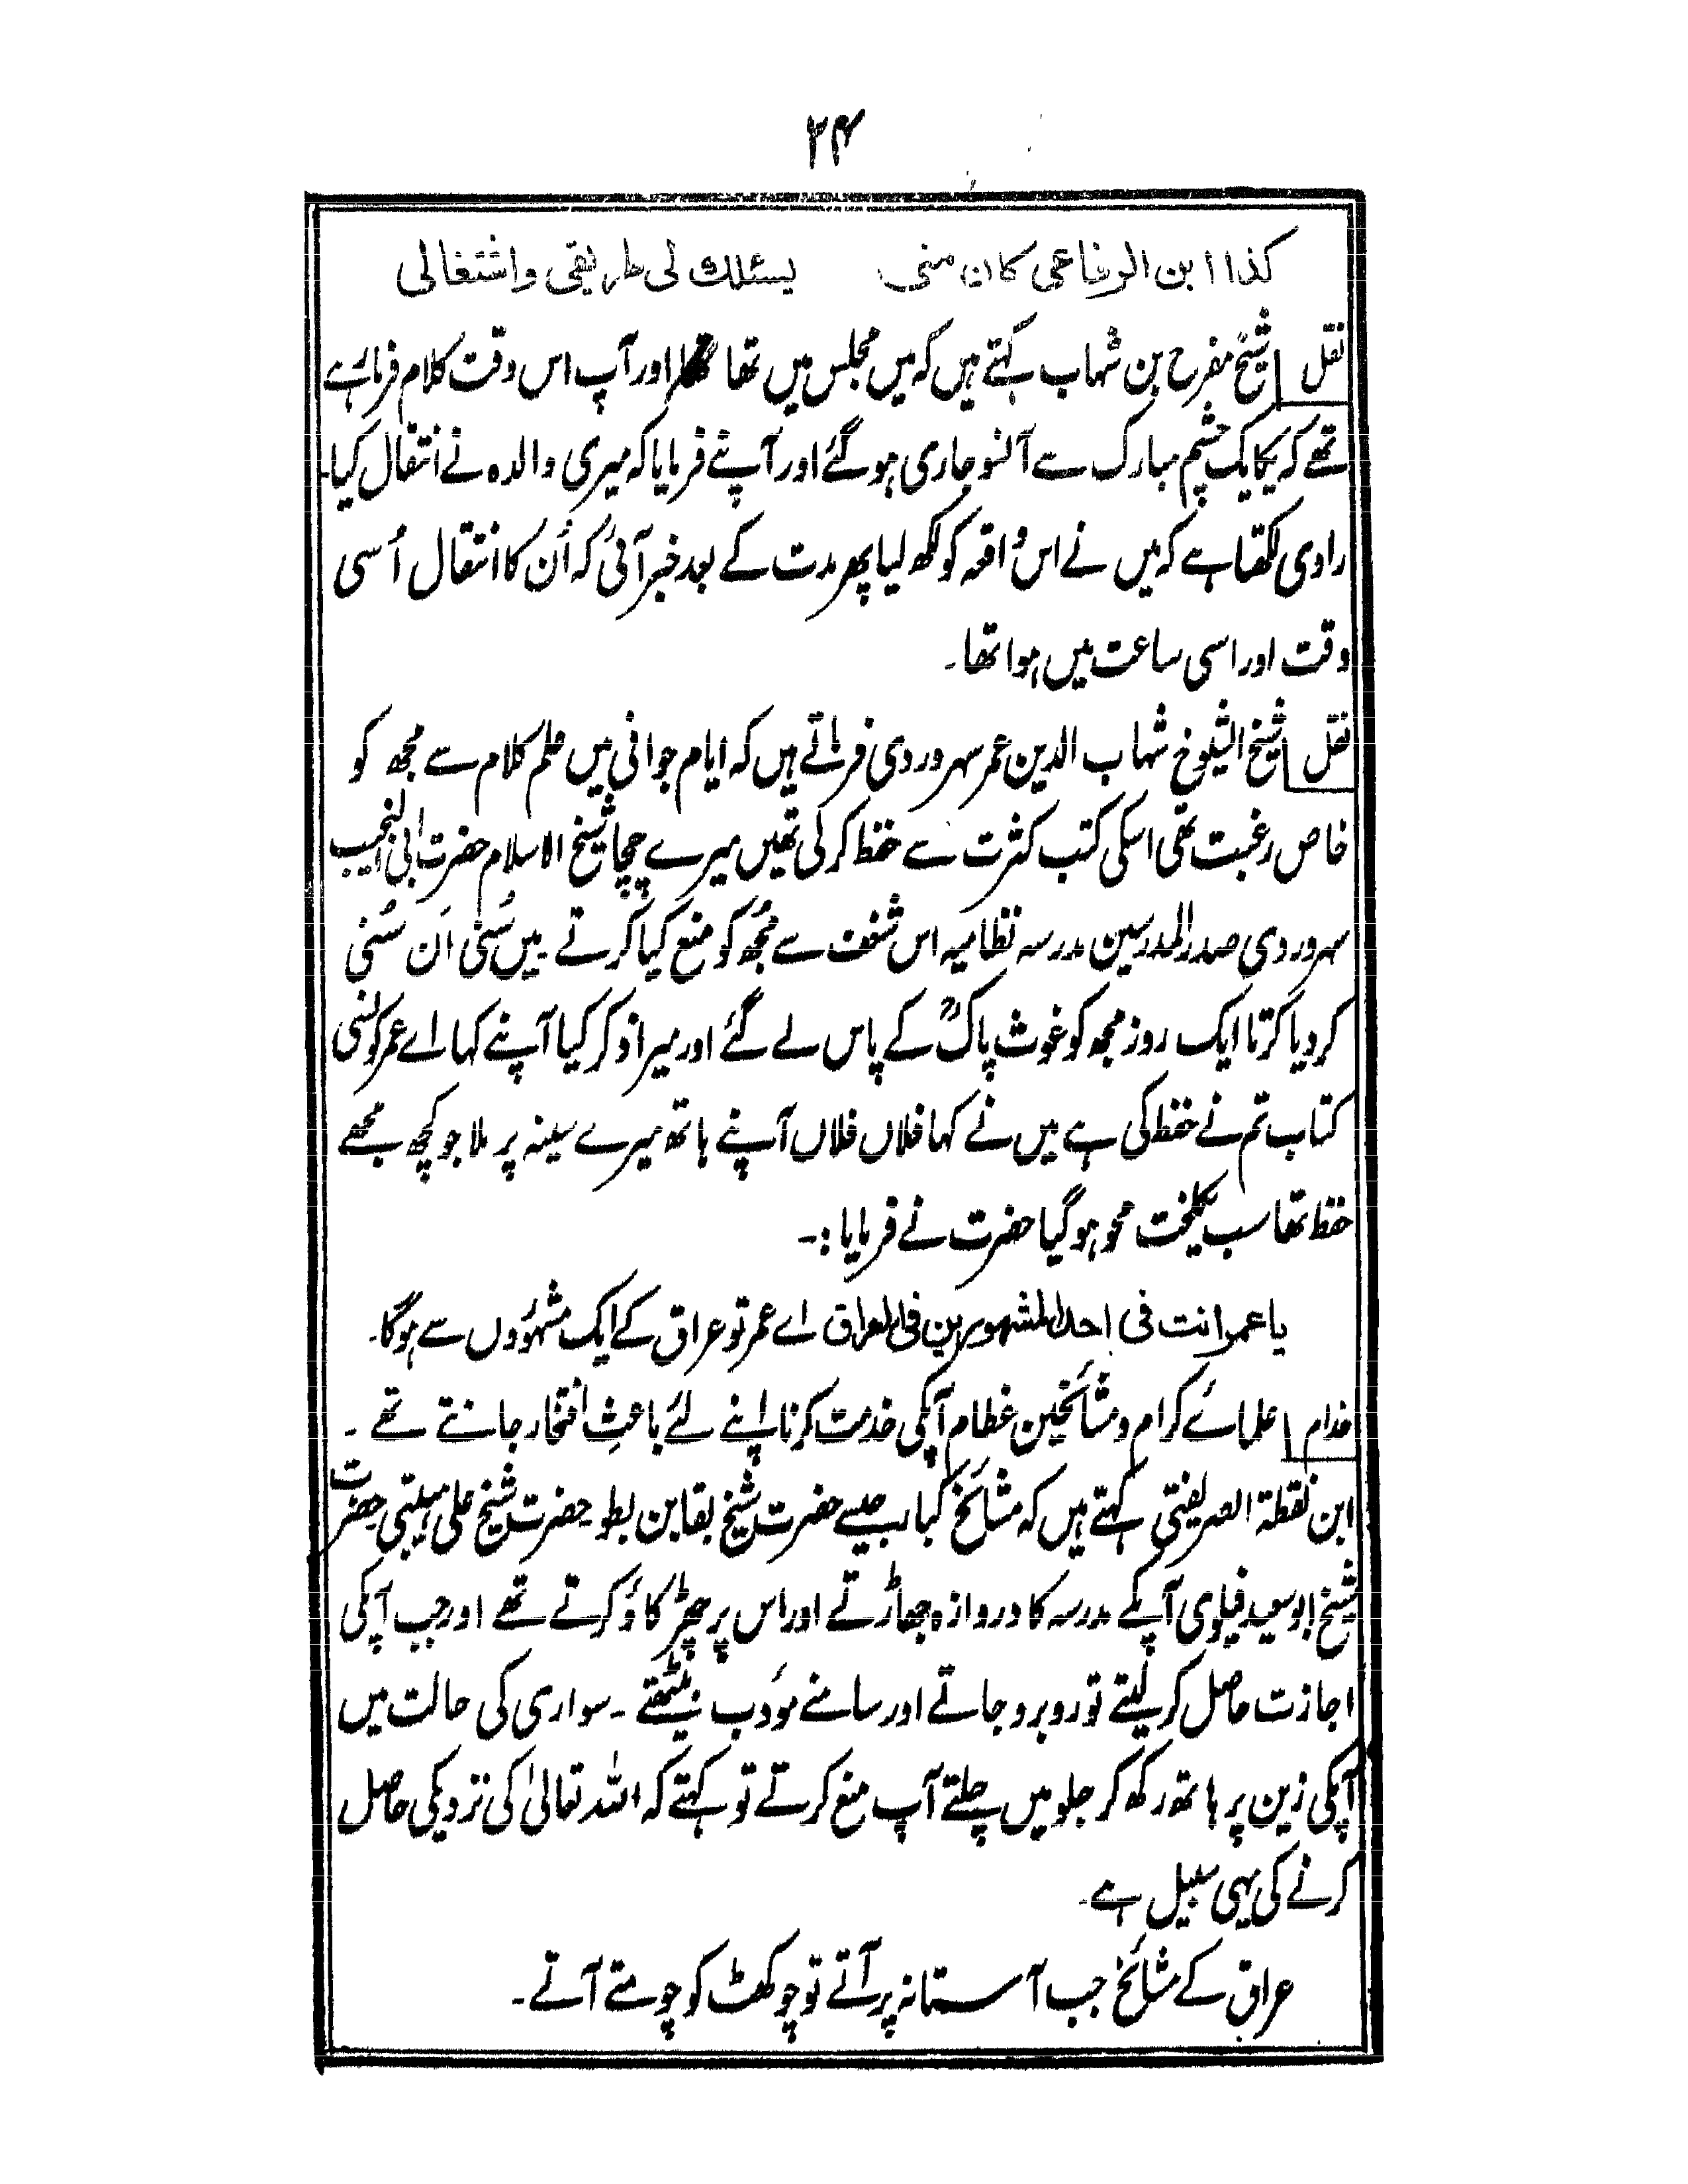 ۲۴
كذا ابن الرفاعى كان منى يسئلك لى طريقى واشتغالى
نقل شیخ مفرح بن شہاب کہتے ہیں کہ میں مجلس میں تھا اور آپ اس وقت کلام فرمارہے
تھے کہ یکایک چشم مبارک سے آنسو جاری ہوگئے اور آپنے فرمایا کہ میری والدہ نے انتقال کیا۔
راوی لکھتا ہے کہ میں نے اس واقعہ کو لکھ لیا پھر مدت کے بعد خبر آئی کہ اُن کا انتقال اُسی
وقت اور اسی ساعت میں ہوا تھا۔
نقل شیخ الشیوخ شہاب الدین عمر سہروردی فرماتے ہیں کہ ایام جوانی میں علم کلام سے مجھ کو
خاص رغبت تھی اسکی کتب کثرت سے حفظ کرلی تھیں میرے چچا شیخ الاسلام حضرت ابی النجیب
سہروردی صدر المدرسین مدرسہ نظامیہ اس شغف سے مجھ کو منع کیا کرتے ۔ میں سُنی اَن سُنی
کردیا کرتا ایک روز مجھ کو غوث پاکؒ کے پاس لے گئے اور میرا ذکر کیا آپنے کہا اے عمر کونسی
کتاب تم نے حفظ کی ہے میں نے کہا فلاں فلاں آپنے ہاتھ میرے سینہ پر ملا جو کچھ مجھے
حفظ تھا سب یکلخت محو ہوگیا حضرت نے فرمایا :۔
یا عمر انت فی احد المشهورین فی العراق اے عمر تو عراق کے ایک مشہوروں سے ہوگا۔
خدام علمائے کرام و مشائخین عظام آپکی خدمت کرنا اپنے لئے باعثِ افتخار جانتے تھے ۔
ابن نقطة الصریفنی کہتے ہیں کہ مشائخ کبار جیسے حضرت شیخ بقا بن بطو حضرت شیخ علی ہیتی حضرت
شیخ ابو سعید قیلوی آپکے مدرسہ کا دروازہ جھاڑتے اور اس پر چھڑکاؤ کرتے تھے اور جب آپکی
اجازت حاصل کرلیتے تو روبرو جاتے اور سامنے مؤدب بیٹھتے ۔ سواری کی حالت میں
آپکی زین پر ہاتھ رکھ کر جلو میں چلتے آپ منع کرتے تو کہتے کہ اللہ تعالیٰ کی نزدیکی حاصل
کرنے کی یہی سبیل ہے۔
عراق کے مشائخ جب آستانہ پر آتے تو چوکھٹ کو چومتے آتے ۔